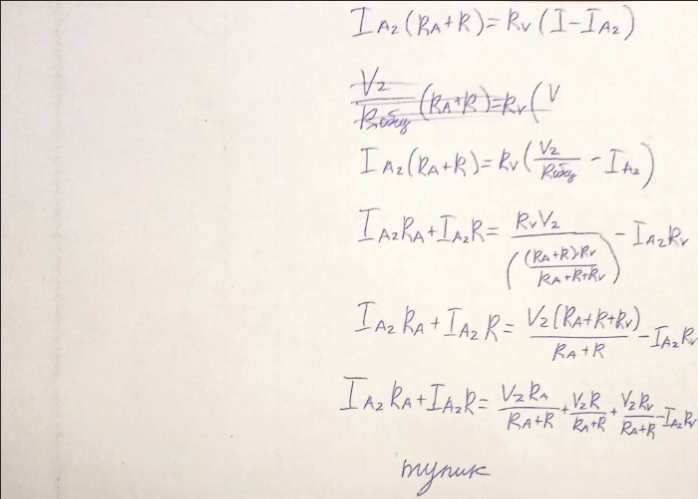 I_A2(R_A+R)=R_V(I-I_A2)
V_2/R_общ (R_A+R)=R_V(V
I_A2(R_A+R)=R_V(V_2/R_общ - I_A2)
I_A2R_A+I_A2R= R_VV_2/((R_A+R)R_V/(R_A+R+R_V)) - I_A2R_V
I_A2R_A+I_A2R= V_2(R_A+R+R_V)/(R_A+R) - I_A2R_V
I_A2R_A+I_A2R= V_2R_A/(R_A+R) + V_2R/(R_A+R) + V_2R_V/(R_A+R) - I_A2R_V
тупик